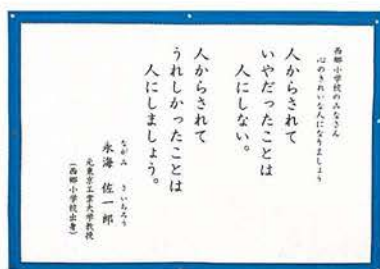 西郷小学校のみなさん
心のきれいな人になりましょう
人からされて
いやだったことは
人にしない。
人からされて
うれしかったことは
人にしましょう。
ながみ さいちろう
永海 佐一郎
元東京工業大学教授
(西郷小学校出身)